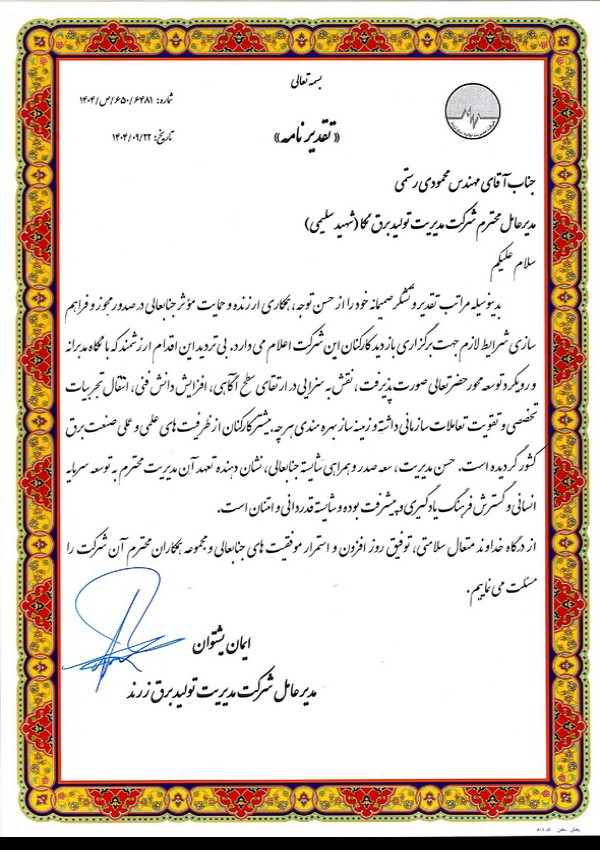 بسمه تعالی
شماره: ۱۴۰۴/ص/۶۵۰/۶۴۸۱
«تقدیر نامه»
تاریخ: ۱۴۰۴/۰۹/۲۲
جناب آقای مهندس محمودی رستمی
مدیرعامل محترم شرکت مدیریت تولید برق نکا (شهید سلیمی)
سلام علیکم
بدینوسیله مراتب تقدیر و تشکر صمیمانه خود را از حسن توجه، همکاری ارزنده و حمایت مؤثر جنابعالی در صدور مجوز و فراهم
سازی شرایط لازم جهت برگزاری بازدید کارکنان این شرکت اعلام می دارد. بی تردید این اقدام ارزشمند که با نگاه مدبرانه
و رویکرد توسعه محور حضرتعالی صورت پذیرفت، نقش به سزایی در ارتقای سطح آگاهی، افزایش دانش فنی، انتقال تجربیات
تخصصی و تقویت تعاملات سازمانی داشته و زمینه ساز بهره مندی هرچه بیشتر کارکنان از ظرفیت های علمی و عملی صنعت برق
کشور گردیده است. حسن مدیریت، سعه صدر و همراهی شایسته جنابعالی، نشان دهنده تعهد آن مدیریت محترم به توسعه سرمایه
انسانی و گسترش فرهنگ یادگیری و پیشرفت بوده و شایسته قدردانی و امتنان است.
از درگاه خداوند متعال سلامتی، توفیق روز افزون و استمرار موفقیت های جنابعالی و مجموعه همکاران محترم آن شرکت را
مسئلت می نماییم.
ایمان پشتوان
مدیرعامل شرکت مدیریت تولید برق زرند